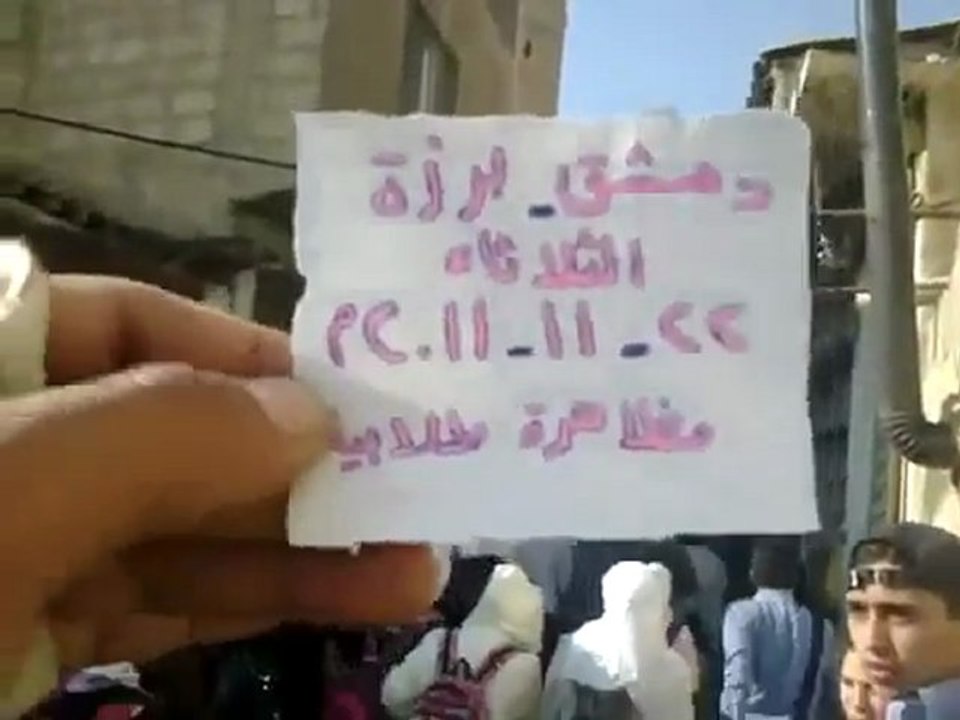 دمشق_ برزة
الثلاثاء
٢٢_ ١١_ ٢٠١١م
مظاهرة طلابية